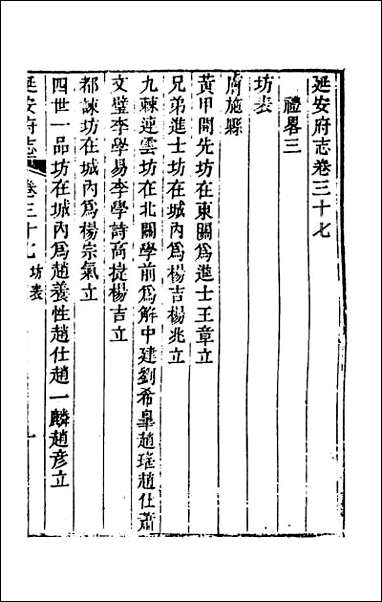 延安府志卷三十七
禮畧三
坊表
膚施縣
黃甲開先坊在東關爲進士王章立
兄弟進士坊在城內爲楊吉楊兆立
九棘連雲坊在北關學前爲解中建劉希皋趙瑤趙仕蕭
文璧李學易李學詩高捷楊吉立
都諫坊在城內爲楊宗氣立
四世一品坊在城內爲趙養性趙仕趙一麟趙彥立
延安府志 卷三十七 坊表 一